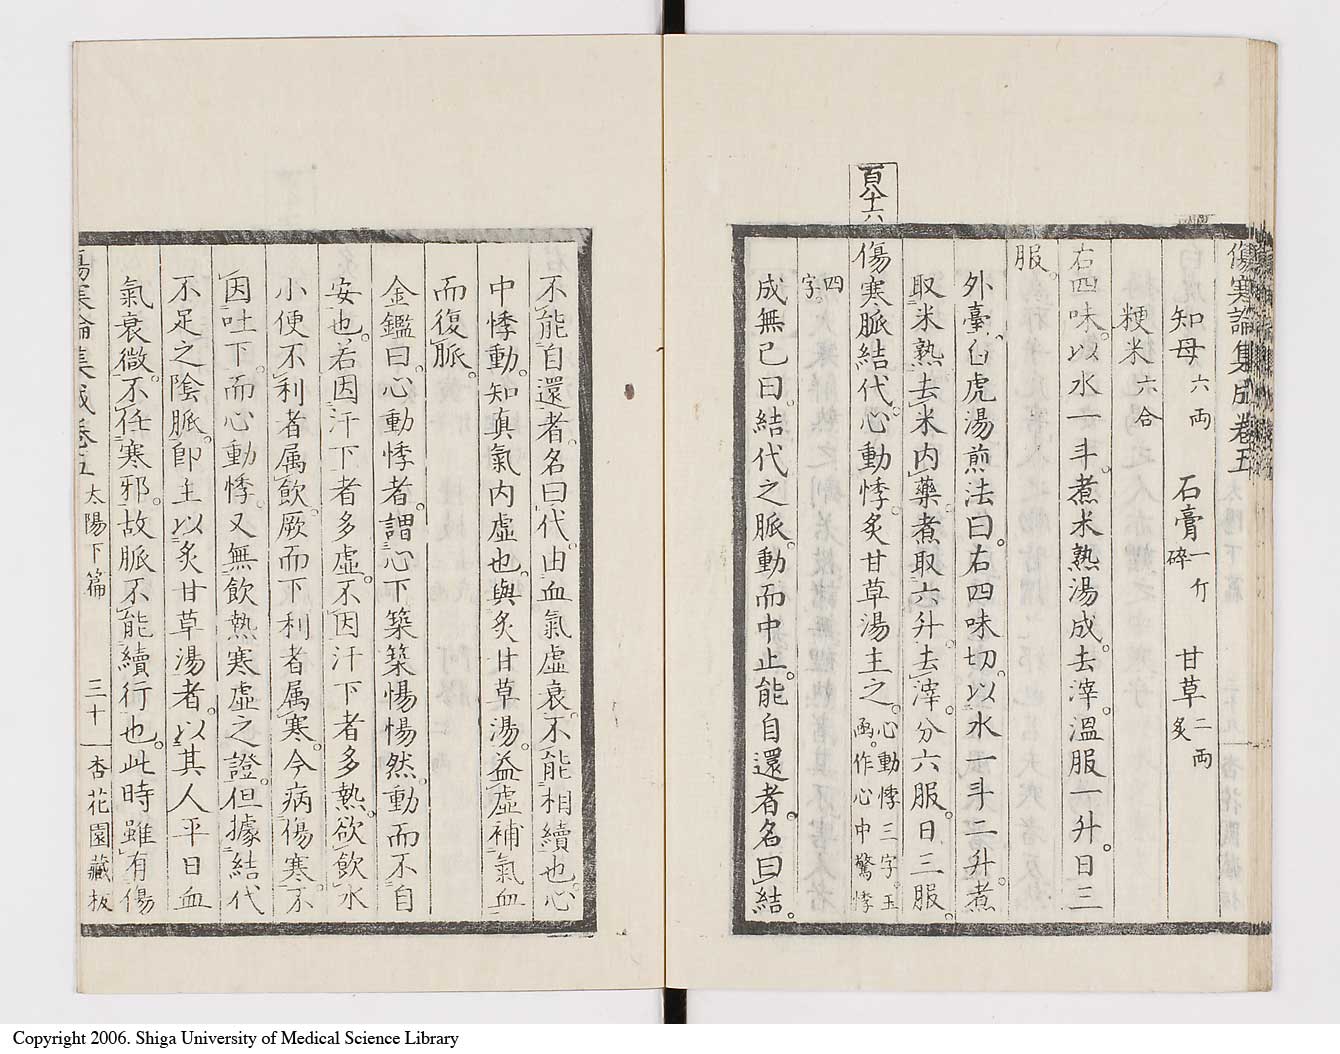 百八十六
傷寒論集成卷五
知母六両 石膏一斤碎 甘草二両炙
粳米六合
右四味。以水一斗。煮米熟湯成。去滓。溫服一升。日三
服。
外臺。白虎湯煎法曰。右四味切。以水一斗二升。煮
取米熟。去米内藥。煮取六升。去滓。分六服。日三服。
傷寒脈結代。心動悸。炙甘草湯主之。心動悸三字。玉函。作心中驚悸
四字。
成無已曰。結代之脈。動而中止。能自還者。名曰結。
不能自還者。名曰代。由血氣虛衰。不能相續也。心
中悸動。知眞氣内虛也。與炙甘草湯。益虛補氣血
而復脈。
金鑑曰。心動悸者。謂心下築築惕惕然。動而不自
安也。若因汗下者多虛。不因汗下者多熱。欲飲水
小便不利者属飲。厥而下利者属寒。今病傷寒。不
因吐下。而心動悸。又無飲熱寒虛之證。但據結代
不足之陰脈。卽主以炙甘草湯者。以其人平日血
氣衰微。不任寒邪。故脈不能續行也。此時雖有傷
傷寒論集成卷五 太陽下篇 三十 杏花園藏板
Copyright 2006. Shiga University of Medical Science Library